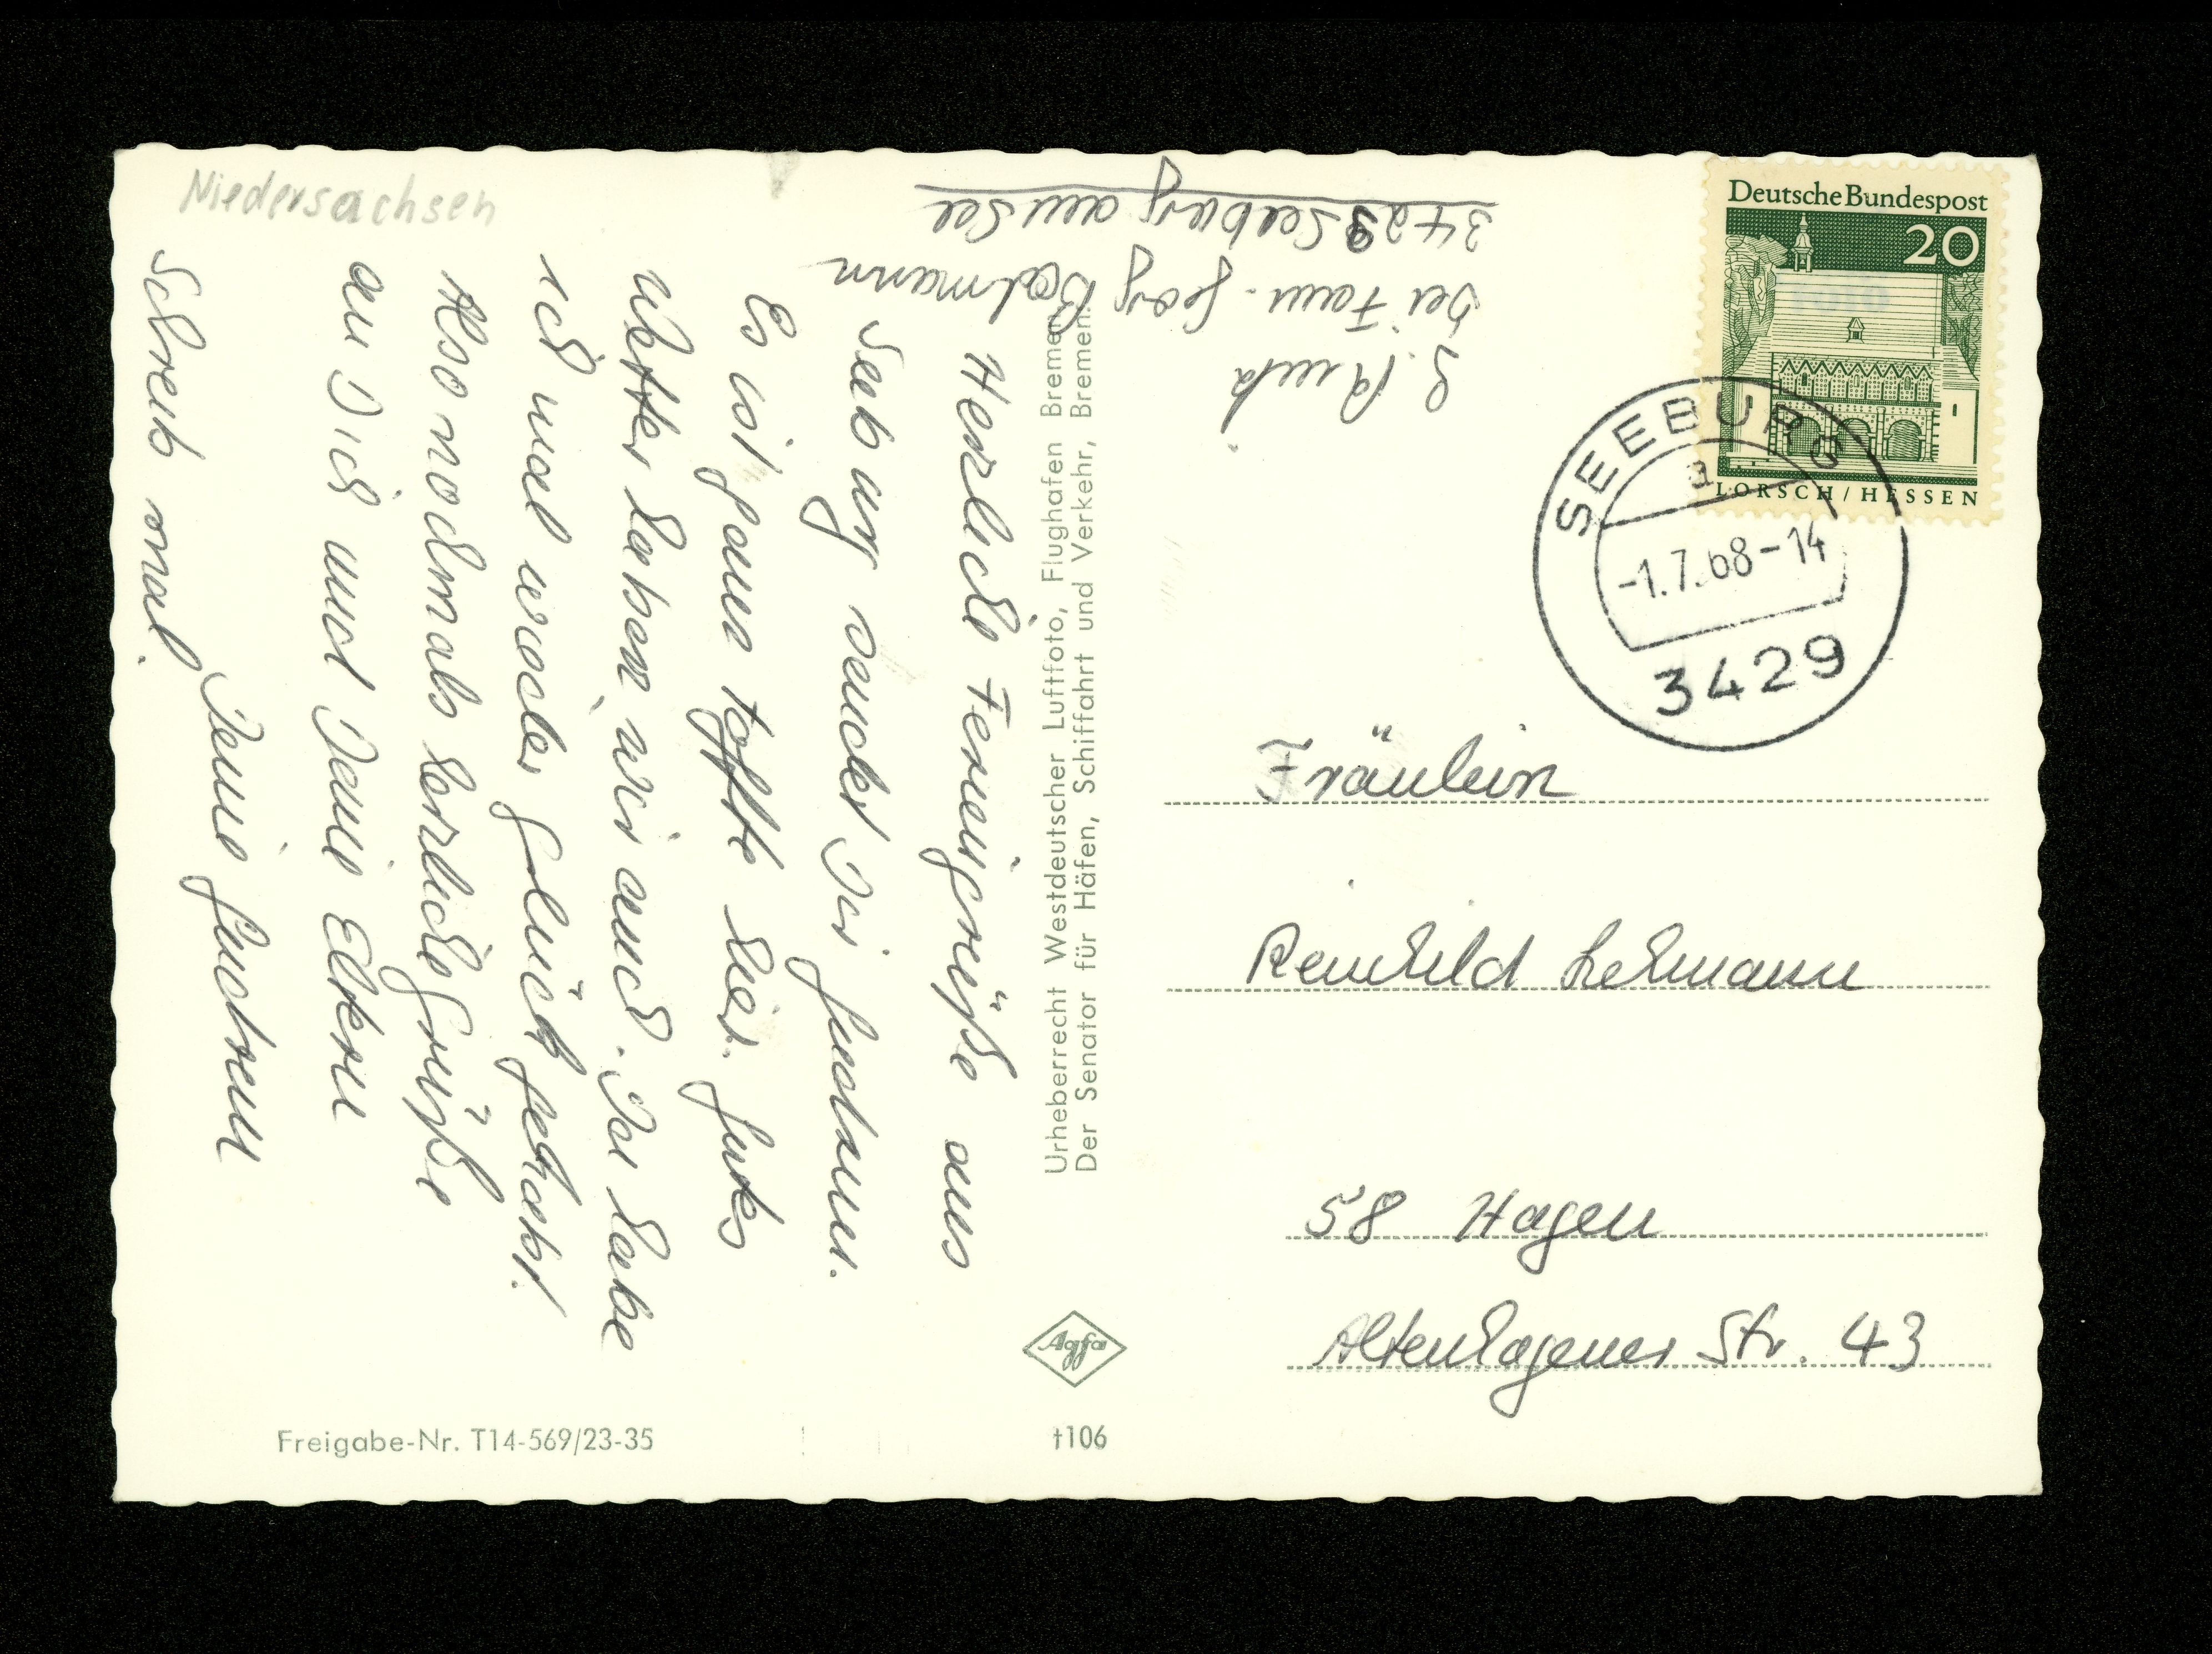 Niedersachsen
Herzliche Feriengrüße aus
Seeburg sendet Dir Gudrun.
Es ist ganz toffte hier. Gutes
Wetter haben wir auch. Da habe
ich mal wieder Glück gehabt.
Also nochmals herzliche Grüße
an Dich und Deine Eltern
Deine Gudrun
Schreib mal.
G.
bei Fam. Georg Bodmann
3429 Seeburg am See
Urheberrecht Westdeutscher Luftfoto, Flughafen Bremen
Der Senator für Häfen, Schiffahrt und Verkehr, Bremen.
Deutsche Bundespost
20
LORSCH / HESSEN
SEEBURG
a
-1.7.68-14
3429
Fräulein
Reinhild Lehmann
58 Hagen
Altenhagener Str. 43
Agfa
Freigabe-Nr. T14-569/23-35
t106